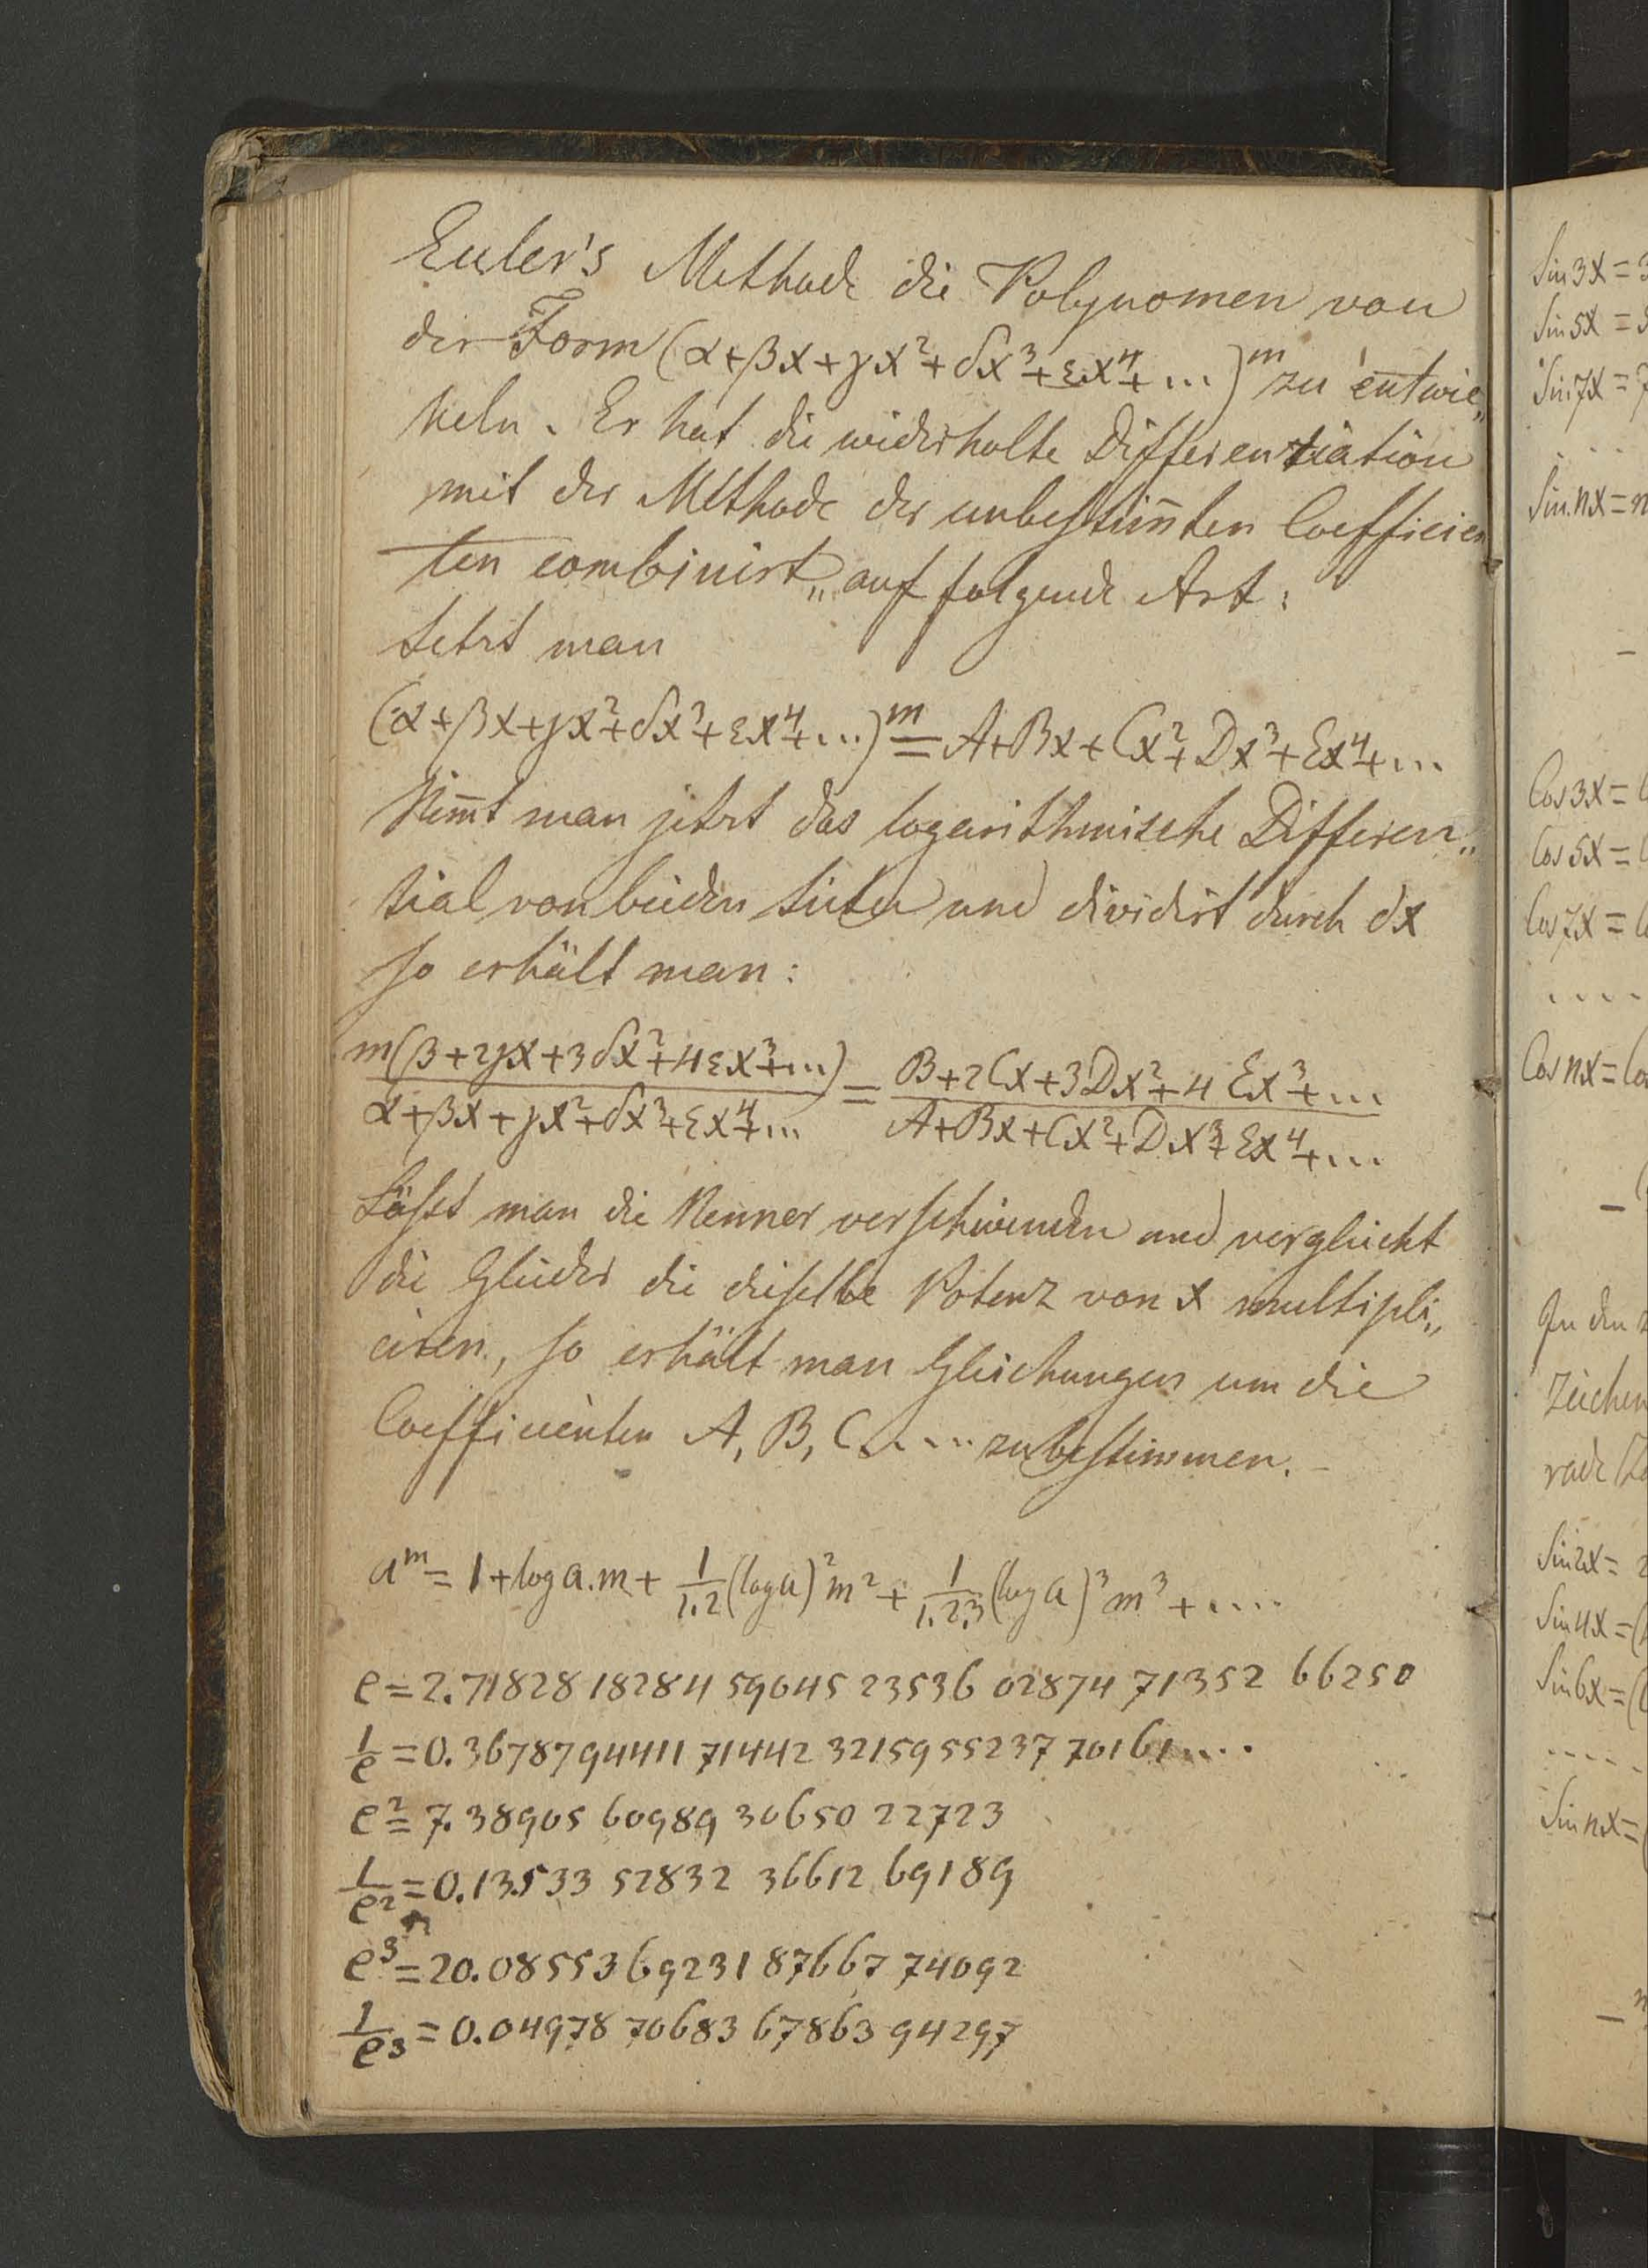 Euler's Methode die Polynomen von
der Form (α+βx+γx²+δx³+εx⁴+...)ᵐ zu entwic„
keln. Er hat die widerholte Differentiation
mit der Methode der unbestim̄ten Coefficien
ten combinirt„ auf folgende Art:
Setzt man
(α+βx+γx²+δx³+εx⁴+...)ᵐ = A+Bx+Cx²+Dx³+Ex⁴+...
Nim̄t man jetzt das logarithmische Differen„
tial von beiden Seiten und dividirt durch dx
so erhält man:
m(β+2γx+3δx²+4εx³+...) / α+βx+γx²+δx³+εx⁴+... = B+2Cx+3Dx²+4Ex³+... / A+Bx+Cx²+Dx³+Ex⁴+...
Läßt man die Nenner verschwinden und vergleicht
die Glieder die dieselbe Potenz von x multipli„
ciren, so erhält man Gleichungen um die
Coefficienten A, B, C..... zu bestimmen.
aᵐ = 1+log a.m + 1/1.2 (log a)² m² + 1/1.2.3 (log a)³ m³ + ....
e = 2.71828 18284 59045 23536 02874 71352 66250
1/e = 0.36787944117144232159552377 0161....
e² = 7.38905 60989 30650 22723
1/e² = 0.13533 52832 36612 69189
e³ = 20.08553692318766774092
1/e³ = 0.04978 70683 67863 94297
Sin 3x = 3
Sin 5x = 5
Sin 7x = 7
. . .
Sin.nx = n
Cos 3x = C
Cos 5x = C
Cos 7x = Co
. . . .
Cos nx = Co
In den
Zeichen
rade
Sin 2x = 2
Sin 4x = (
Sin 6x = (
- - - -
Sin nx = (